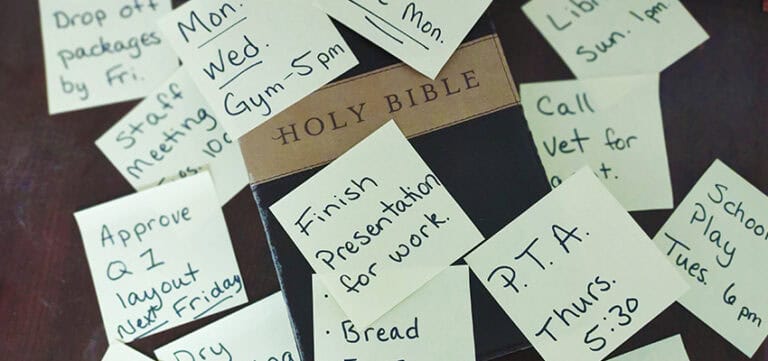 Drop off
packages
by Fri.
Mon.
Wed.
Gym-5pm
Mon.
Sun. 1pm
Staff
Meeting
HOLY BIBLE
Call
Vet for
Finish
Presentation
for work.
Approve
Q1
layout
Next Friday
P.T.A.
Thurs.
5:30
School
Play
Tues. 6pm
Dry
· Bread